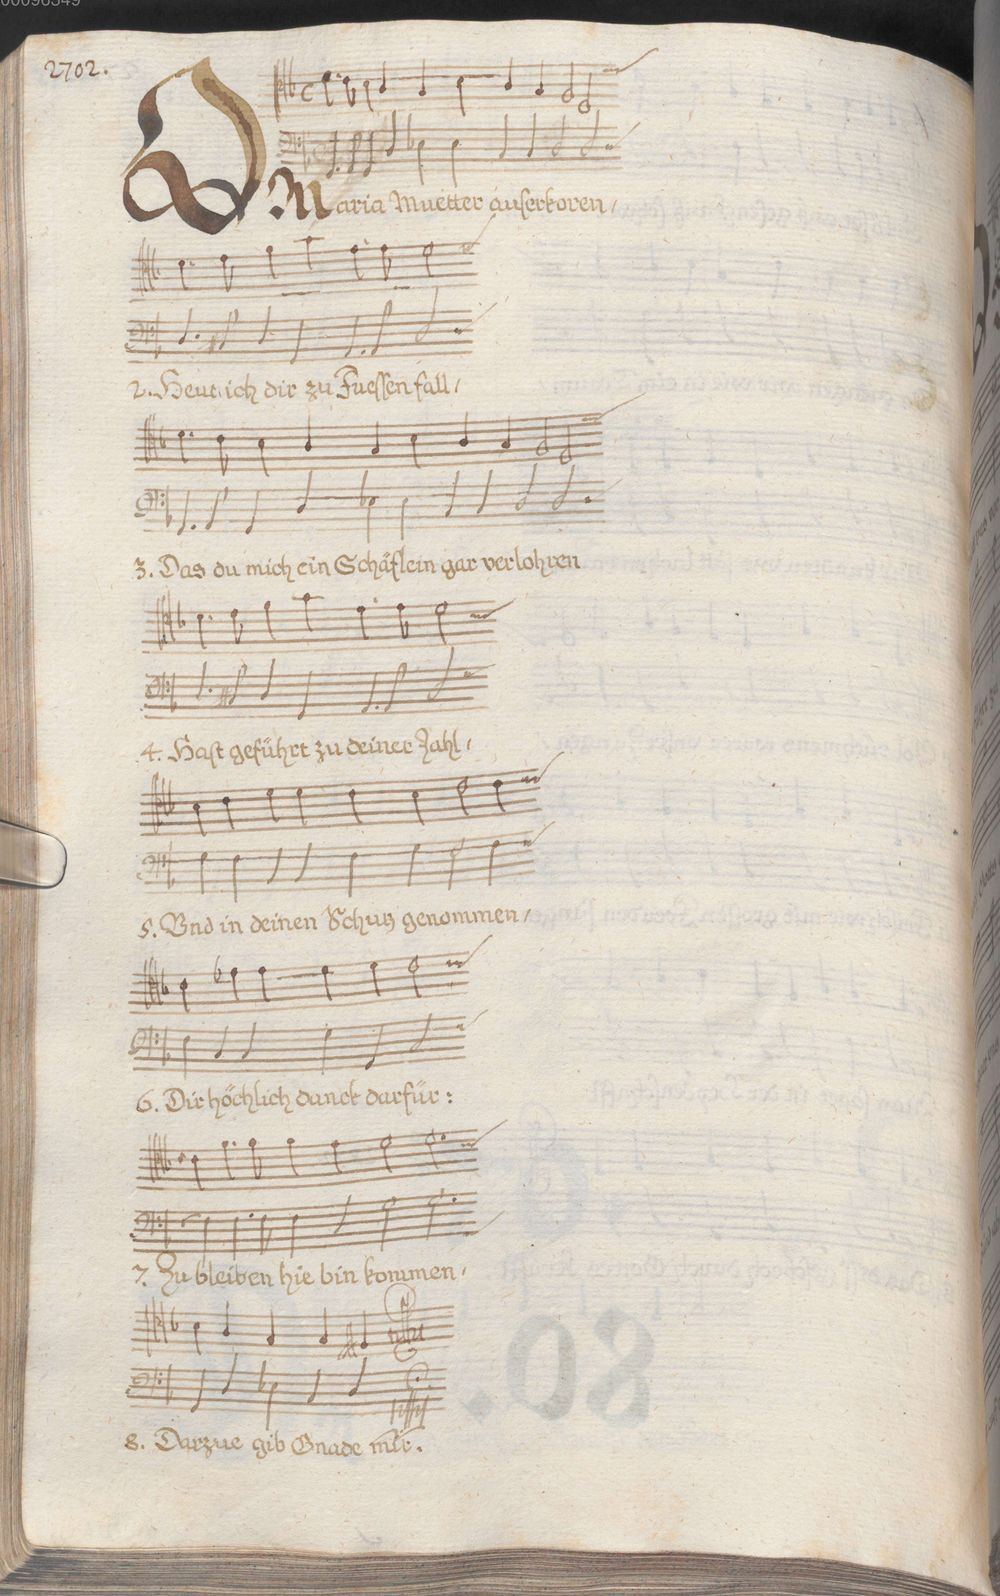 00096549
2702.
O Maria Muetter außerkoren,
2. Heut ich dir zu Fuessen fall,
3. Das du mich ein Schäflein gar verlohren
4. Hast geführt zu deiner Zahl,
5. Vnd in deinen Schutz genommen,
6. Dir höchlich danck darfür:
7. Zu bleiben hie bin kommen,
8. Darzue gib Gnade mir.